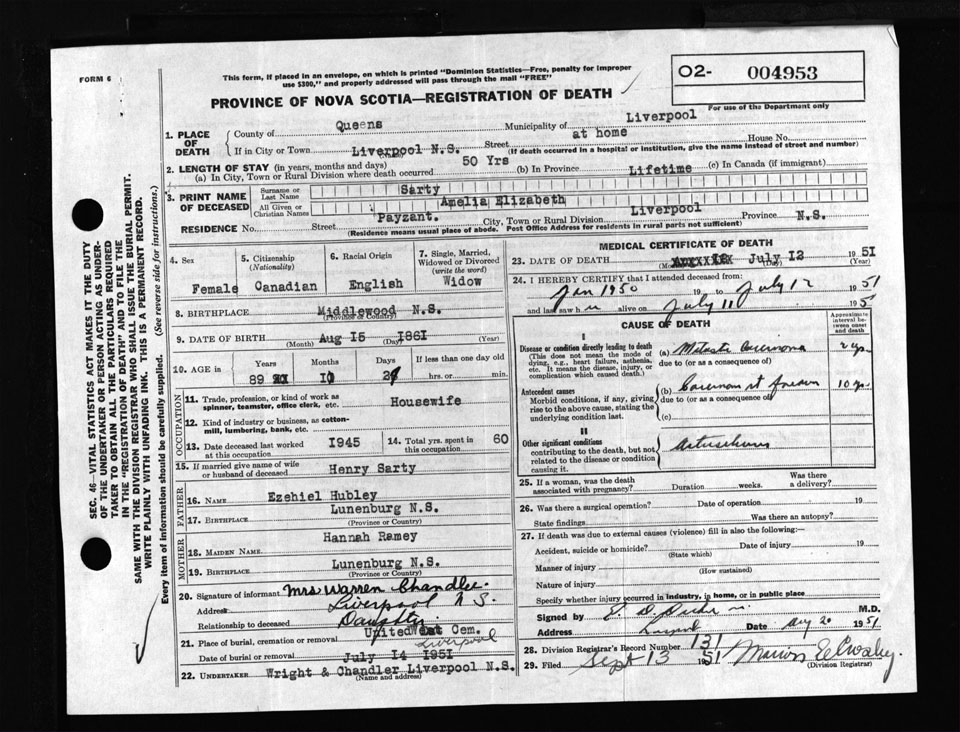 FORM 6
This form, if placed in an envelope, on which is printed "Dominion Statistics—Free, penalty for improper
use $300," and properly addressed will pass through the mail "FREE"
O2- 004953
For use of the Department only
PROVINCE OF NOVA SCOTIA—REGISTRATION OF DEATH
SEC. 46—VITAL STATISTICS ACT MAKES IT THE DUTY
OF THE UNDERTAKER OR PERSON ACTING AS UNDER-
TAKER TO OBTAIN ALL THE PARTICULARS REQUIRED
IN THE "REGISTRATION OF DEATH" AND TO FILE THE
SAME WITH THE DIVISION REGISTRAR WHO SHALL ISSUE THE BURIAL PERMIT.
WRITE PLAINLY WITH UNFADING INK. THIS IS A PERMANENT RECORD.
Every item of information should be carefully supplied. (See reverse side for instructions.)
1. PLACE OF DEATH
County of Queens Municipality of Liverpool
If in City or Town Liverpool N.S. Street at home House No.
(Name) (If death occurred in a hospital or institution, give the name instead of street and number)
2. LENGTH OF STAY (in years, months and days)
(a) In City, Town or Rural Division where death occurred 50 Yrs (b) In Province Lifetime (c) In Canada (if immigrant)
3. PRINT NAME OF DECEASED
Surname or Last Name Sarty
All Given or Christian Names Amelia Elizabeth
RESIDENCE No. Street Payzant. City, Town or Rural Division Liverpool Province N.S.
(Residence means usual place of abode. Post Office Address for residents in rural parts not sufficient)
4. Sex Female
5. Citizenship (Nationality) Canadian
6. Racial Origin English
7. Single, Married, Widowed or Divorced (write the word) Widow
8. BIRTHPLACE Middlewood N.S.
(Province or Country)
9. DATE OF BIRTH Aug I5 I86I
(Month) (Day) (Year)
10. AGE in Years Months Days If less than one day old
89 I0 hrs. or min.
OCCUPATION
11. Trade, profession, or kind of work as
spinner, teamster, office clerk, etc. Housewife
12. Kind of industry or business, as cotton-
mill, lumbering, bank, etc.
13. Date deceased last worked at this occupation I945
14. Total yrs. spent in this occupation 60
15. If married give name of wife or husband of deceased Henry Sarty
FATHER
16. NAME Ezehiel Hubley
17. BIRTHPLACE Lunenburg N.S.
(Province or Country)
MOTHER
18. MAIDEN NAME Hannah Ramey
19. BIRTHPLACE Lunenburg N.S.
(Province or Country)
20. Signature of informant Mrs Warren Chandler.
Address Liverpool N S.
Relationship to deceased Daughter.
21. Place of burial, cremation or removal United Cem.
Liverpool
Date of burial or removal July I4 I95I
22. UNDERTAKER Wright & Chandler Liverpool N.S.
(Name and address)
MEDICAL CERTIFICATE OF DEATH
23. DATE OF DEATH July I2 195I
(Month) (Day)
24. I HEREBY CERTIFY that I attended deceased from:
Jan 1950 19 to July 12 1951
and last saw h alive on July 11 195
CAUSE OF DEATH
Approximate interval between onset and death
I
Disease or condition directly leading to death
(This does not mean the mode of
dying, e.g., heart failure, asthenia,
etc. It means the disease, injury, or
complication which caused death.)
(a) Carcinoma 2 yrs.
due to (or as a consequence of)
Antecedent causes
Morbid conditions, if any, giving
rise to the above cause, stating the
underlying condition last.
(b) 10 yrs.
due to (or as a consequence of)
(c)
II
Other significant conditions
contributing to the death, but not
related to the disease or condition
causing it.
25. If a woman, was the death associated with pregnancy? Duration weeks. Was there a delivery?
26. Was there a surgical operation? Date of operation 19
State findings Was there an autopsy?
27. If death was due to external causes (violence) fill in also the following:—
Accident, suicide or homicide? Date of injury 19
(State which)
Manner of injury
(How sustained)
Nature of injury
Specify whether injury occurred in industry, in home, or in public place
Signed by M.D.
Address Date Aug 20 1951
28. Division Registrar's Record Number 131
29. Filed Sept 13 1951 Marion
(Division Registrar)